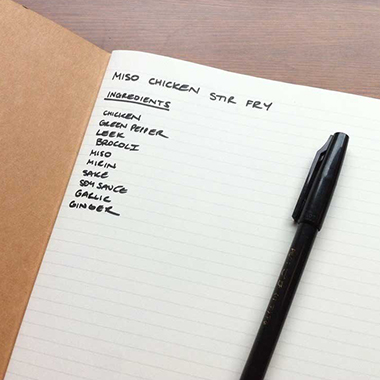 MISO CHICKEN STIR FRY
INGREDIENTS
CHICKEN
GREEN PEPPER
LEEK
BROCOLI
MISO
MIRIN
SAKE
SOY SAUCE
GARLIC
GINGER